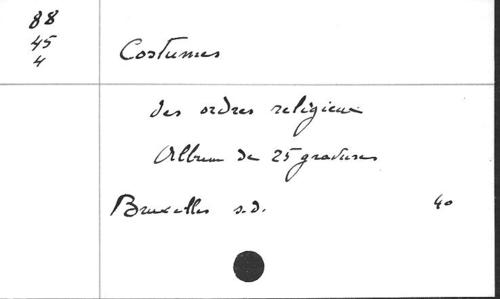 88
45
4
Costumes
des ordres religieux
Album de 25 gravures
Bruxelles s.d. 4o